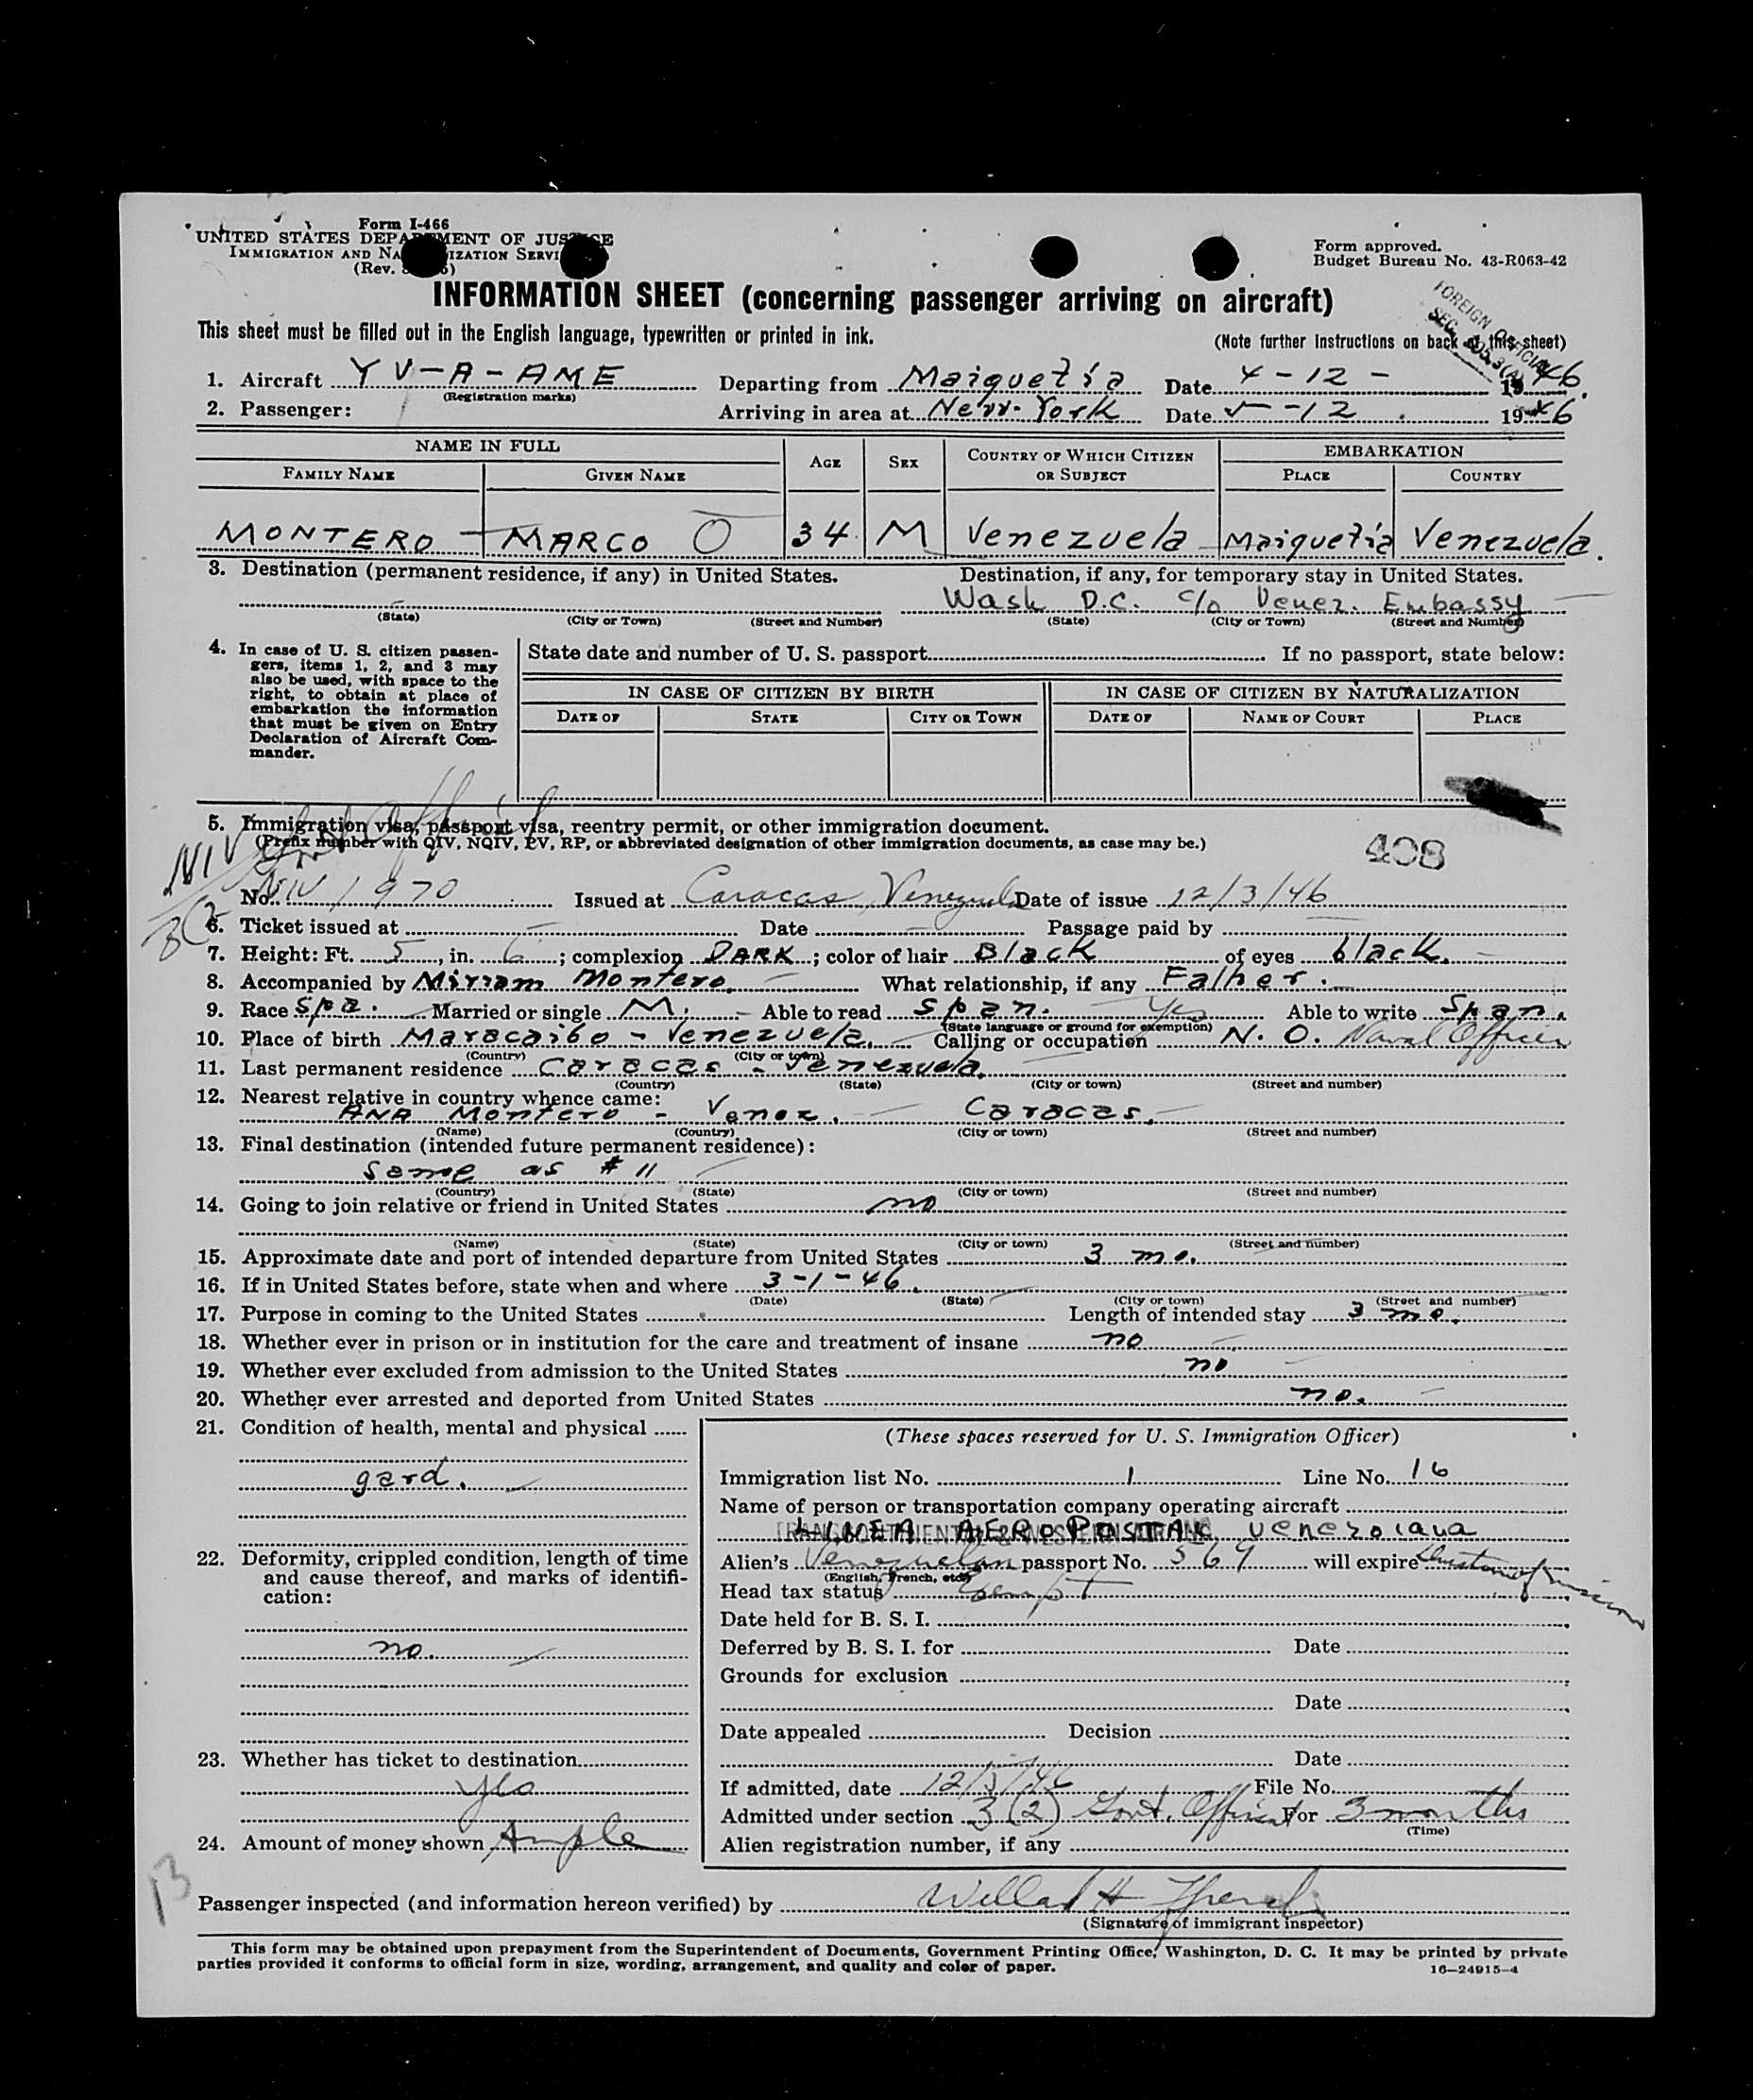 Form I-466
UNITED STATES DEPARTMENT OF JUSTICE
IMMIGRATION AND NATURALIZATION SERVICE
(Rev.
Form approved.
Budget Bureau No. 43-R063-42
INFORMATION SHEET (concerning passenger arriving on aircraft)
FOREIGN OFFICIAL
This sheet must be filled out in the English language, typewritten or printed in ink. (Note further instructions on back of this sheet)
1. Aircraft YV-A-AME Departing from Maiquetia Date 4-12- 1946.
(Registration marks)
2. Passenger: Arriving in area at New-York Date -12 . 1946
NAME IN FULL AGE SEX COUNTRY OF WHICH CITIZEN OR SUBJECT EMBARKATION
FAMILY NAME GIVEN NAME PLACE COUNTRY
MONTERO MARCO O 34 M Venezuela Maiquetia Venezuela.
3. Destination (permanent residence, if any) in United States. Destination, if any, for temporary stay in United States.
Wash D.C. c/o Venez. Embassy
(State) (City or Town) (Street and Number) (State) (City or Town) (Street and Number)
4. In case of U. S. citizen passen-
gers, items 1, 2, and 3 may
also be used, with space to the
right, to obtain at place of
embarkation the information
that must be given on Entry
Declaration of Aircraft Com-
mander.
State date and number of U. S. passport If no passport, state below:
IN CASE OF CITIZEN BY BIRTH IN CASE OF CITIZEN BY NATURALIZATION
DATE OF STATE CITY OR TOWN DATE OF NAME OF COURT PLACE
5. Immigration visa, passport visa, reentry permit, or other immigration document.
(Prefix number with QIV, NQIV, PV, RP, or abbreviated designation of other immigration documents, as case may be.)
408
NIV
No. NIV 1970 Issued at Caracas, Venezuela Date of issue 12/3/46
3(2
6. Ticket issued at Date Passage paid by
7. Height: Ft. 5, in. 6; complexion DARK; color of hair Black of eyes black.
8. Accompanied by Miriam Montero. What relationship, if any Father.
9. Race spa. Married or single M. Able to read span. Yes Able to write Span.
(State language or ground for exemption)
10. Place of birth Maracaibo - Venezuela. Calling or occupation N. O. Naval Officer
(Country) (City or town)
11. Last permanent residence Caracas - Venezuela.
(Country) (State) (City or town) (Street and number)
12. Nearest relative in country whence came:
ANA Montero - Venez. Caracas.
(Name) (Country) (City or town) (Street and number)
13. Final destination (intended future permanent residence):
Same as # 11
(Country) (State) (City or town) (Street and number)
14. Going to join relative or friend in United States no
(Name) (State) (City or town) (Street and number)
15. Approximate date and port of intended departure from United States 3 mo.
16. If in United States before, state when and where 3-1-46.
(Date) (State) (City or town) (Street and number)
17. Purpose in coming to the United States Length of intended stay 3 mo.
18. Whether ever in prison or in institution for the care and treatment of insane no
19. Whether ever excluded from admission to the United States no
20. Whether ever arrested and deported from United States no.
21. Condition of health, mental and physical
(These spaces reserved for U. S. Immigration Officer)
Immigration list No. 1 Line No. 16
Name of person or transportation company operating aircraft
LINEA AEROPOSTAL venezolana
22. Deformity, crippled condition, length of time
and cause thereof, and marks of identifi-
cation:
no.
Alien's Venezuelan passport No. 569 will expire
(English, French, etc.)
Head tax status
Date held for B. S. I.
Deferred by B. S. I. for Date
Grounds for exclusion
Date
Date appealed Decision
Date
23. Whether has ticket to destination
yes
If admitted, date 12/5/46 File No.
Admitted under section 3(2) Govt. Official For 3 months
(Time)
24. Amount of money shown Ample
Alien registration number, if any
Passenger inspected (and information hereon verified) by
(Signature of immigrant inspector)
This form may be obtained upon prepayment from the Superintendent of Documents, Government Printing Office, Washington, D. C. It may be printed by private
parties provided it conforms to official form in size, wording, arrangement, and quality and color of paper.
16—24915-4